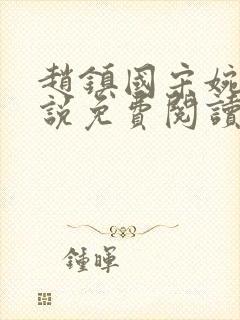 趙鎮國宋婉
說免費閱讀
鍾暉